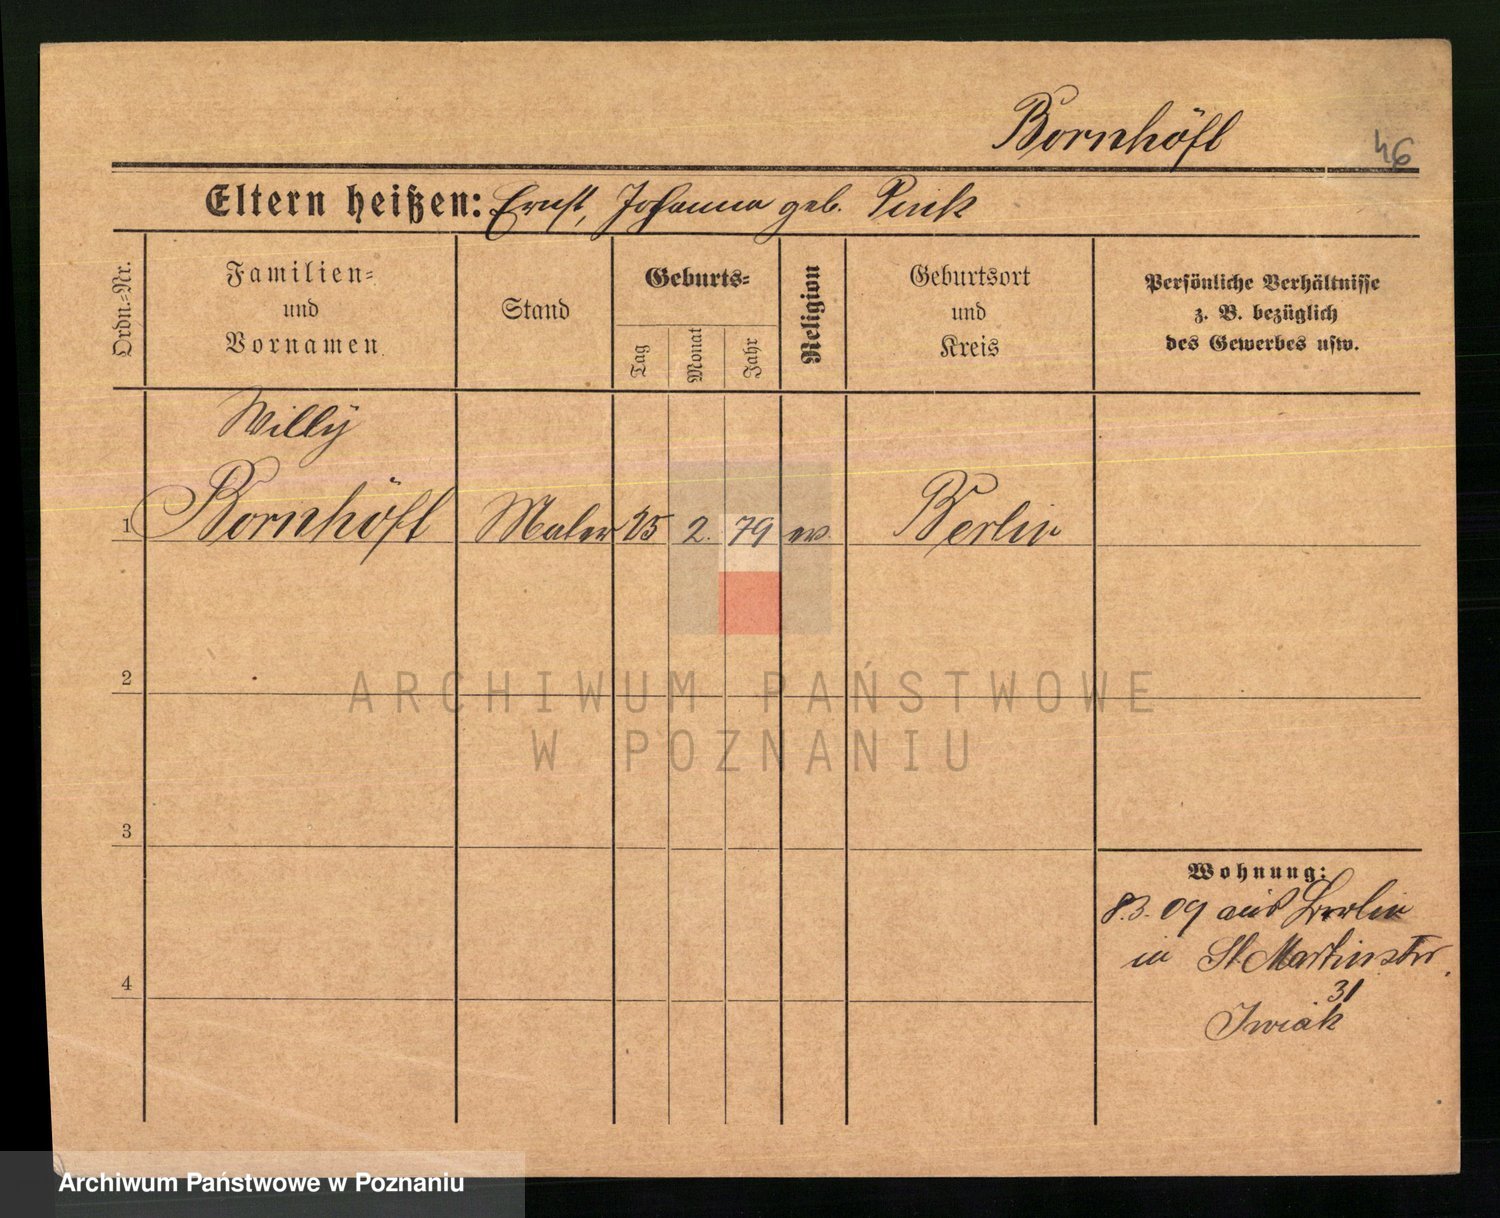 Bornhöft
46
Eltern heißen: Ernst, Johanna geb. Pink
Ordn.-Nr.
Familien-
und
Vornamen
Stand
Geburts-
Tag
Monat
Jahr
Religion
Geburtsort
und
Kreis
Persönliche Verhältnisse
z. B. bezüglich
des Gewerbes usw.
Willÿ
1 Bornhöft Maler 25 2. 79 ev. Berlin
2
ARCHIWUM PAŃSTWOWE
W POZNANIU
3
Wohnung:
8.3.09 aus Berlin
in St Martinstr.
31
4
Archiwum Państwowe w Poznaniu